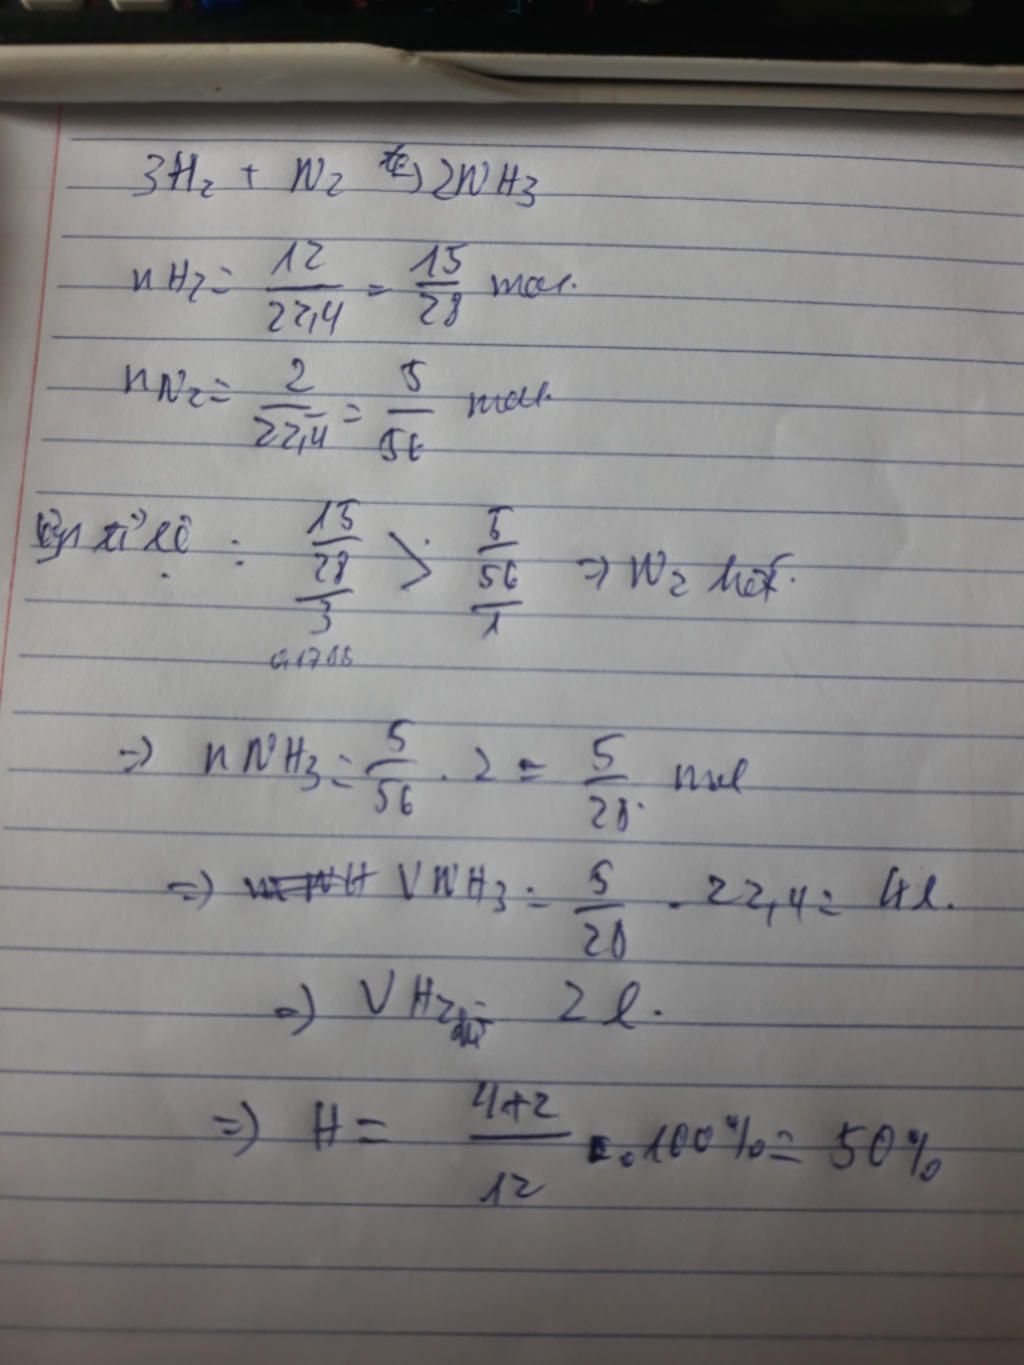 3H2 + N2 → 2NH3
nH2 = 12/22,4 = 15/28 mol.
nN2 = 2/22,4 = 5/56 mol.
tỉ lệ : 15/28/3 > 5/56/1 => N2 hết.
=> nNH3 = 5/56 . 2 = 5/28 mol
=> VNH3 = 5/28 . 22,4 = 4l.
=> VH2 = 2l.
=> H = 4+2/12 . 100% = 50%